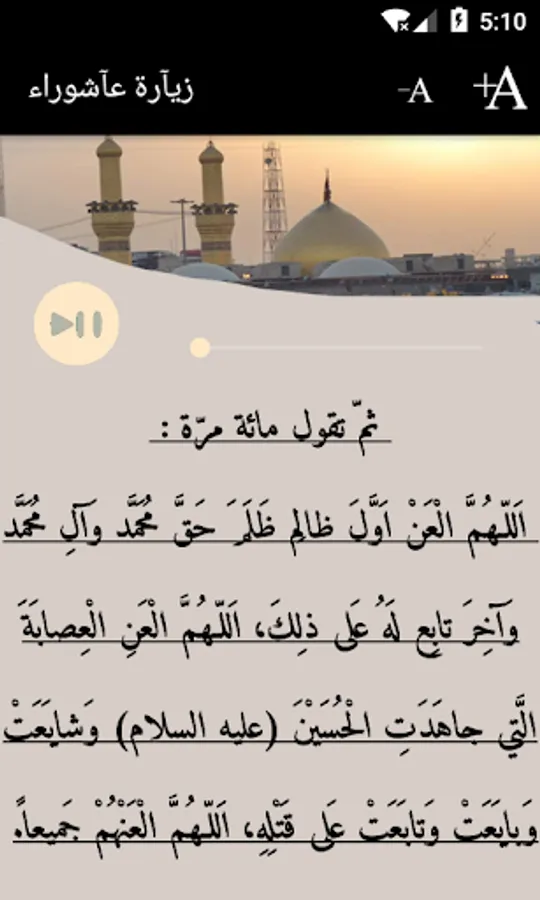 5:10
زيآرة عآشوراء
-A
+A
ثمّ تقول مائة مرّة :
اَللّـهُمَّ الْعَنْ اَوَّلَ ظالِم ظَلَمَ حَقَّ مُحَمَّد وَآلِ مُحَمَّد
وَآخِرَ تابِع لَهُ عَلى ذلِكَ، اَللّـهُمَّ الْعَنِ الْعِصابَةَ
الَّتي جاهَدَتِ الْحُسَيْنَ (عليه السلام) وَشايَعَتْ
وَبايَعَتْ وَتابَعَتْ عَلى قَتْلِهِ، اَللّـهُمَّ الْعَنْهُمْ جَميعاً.